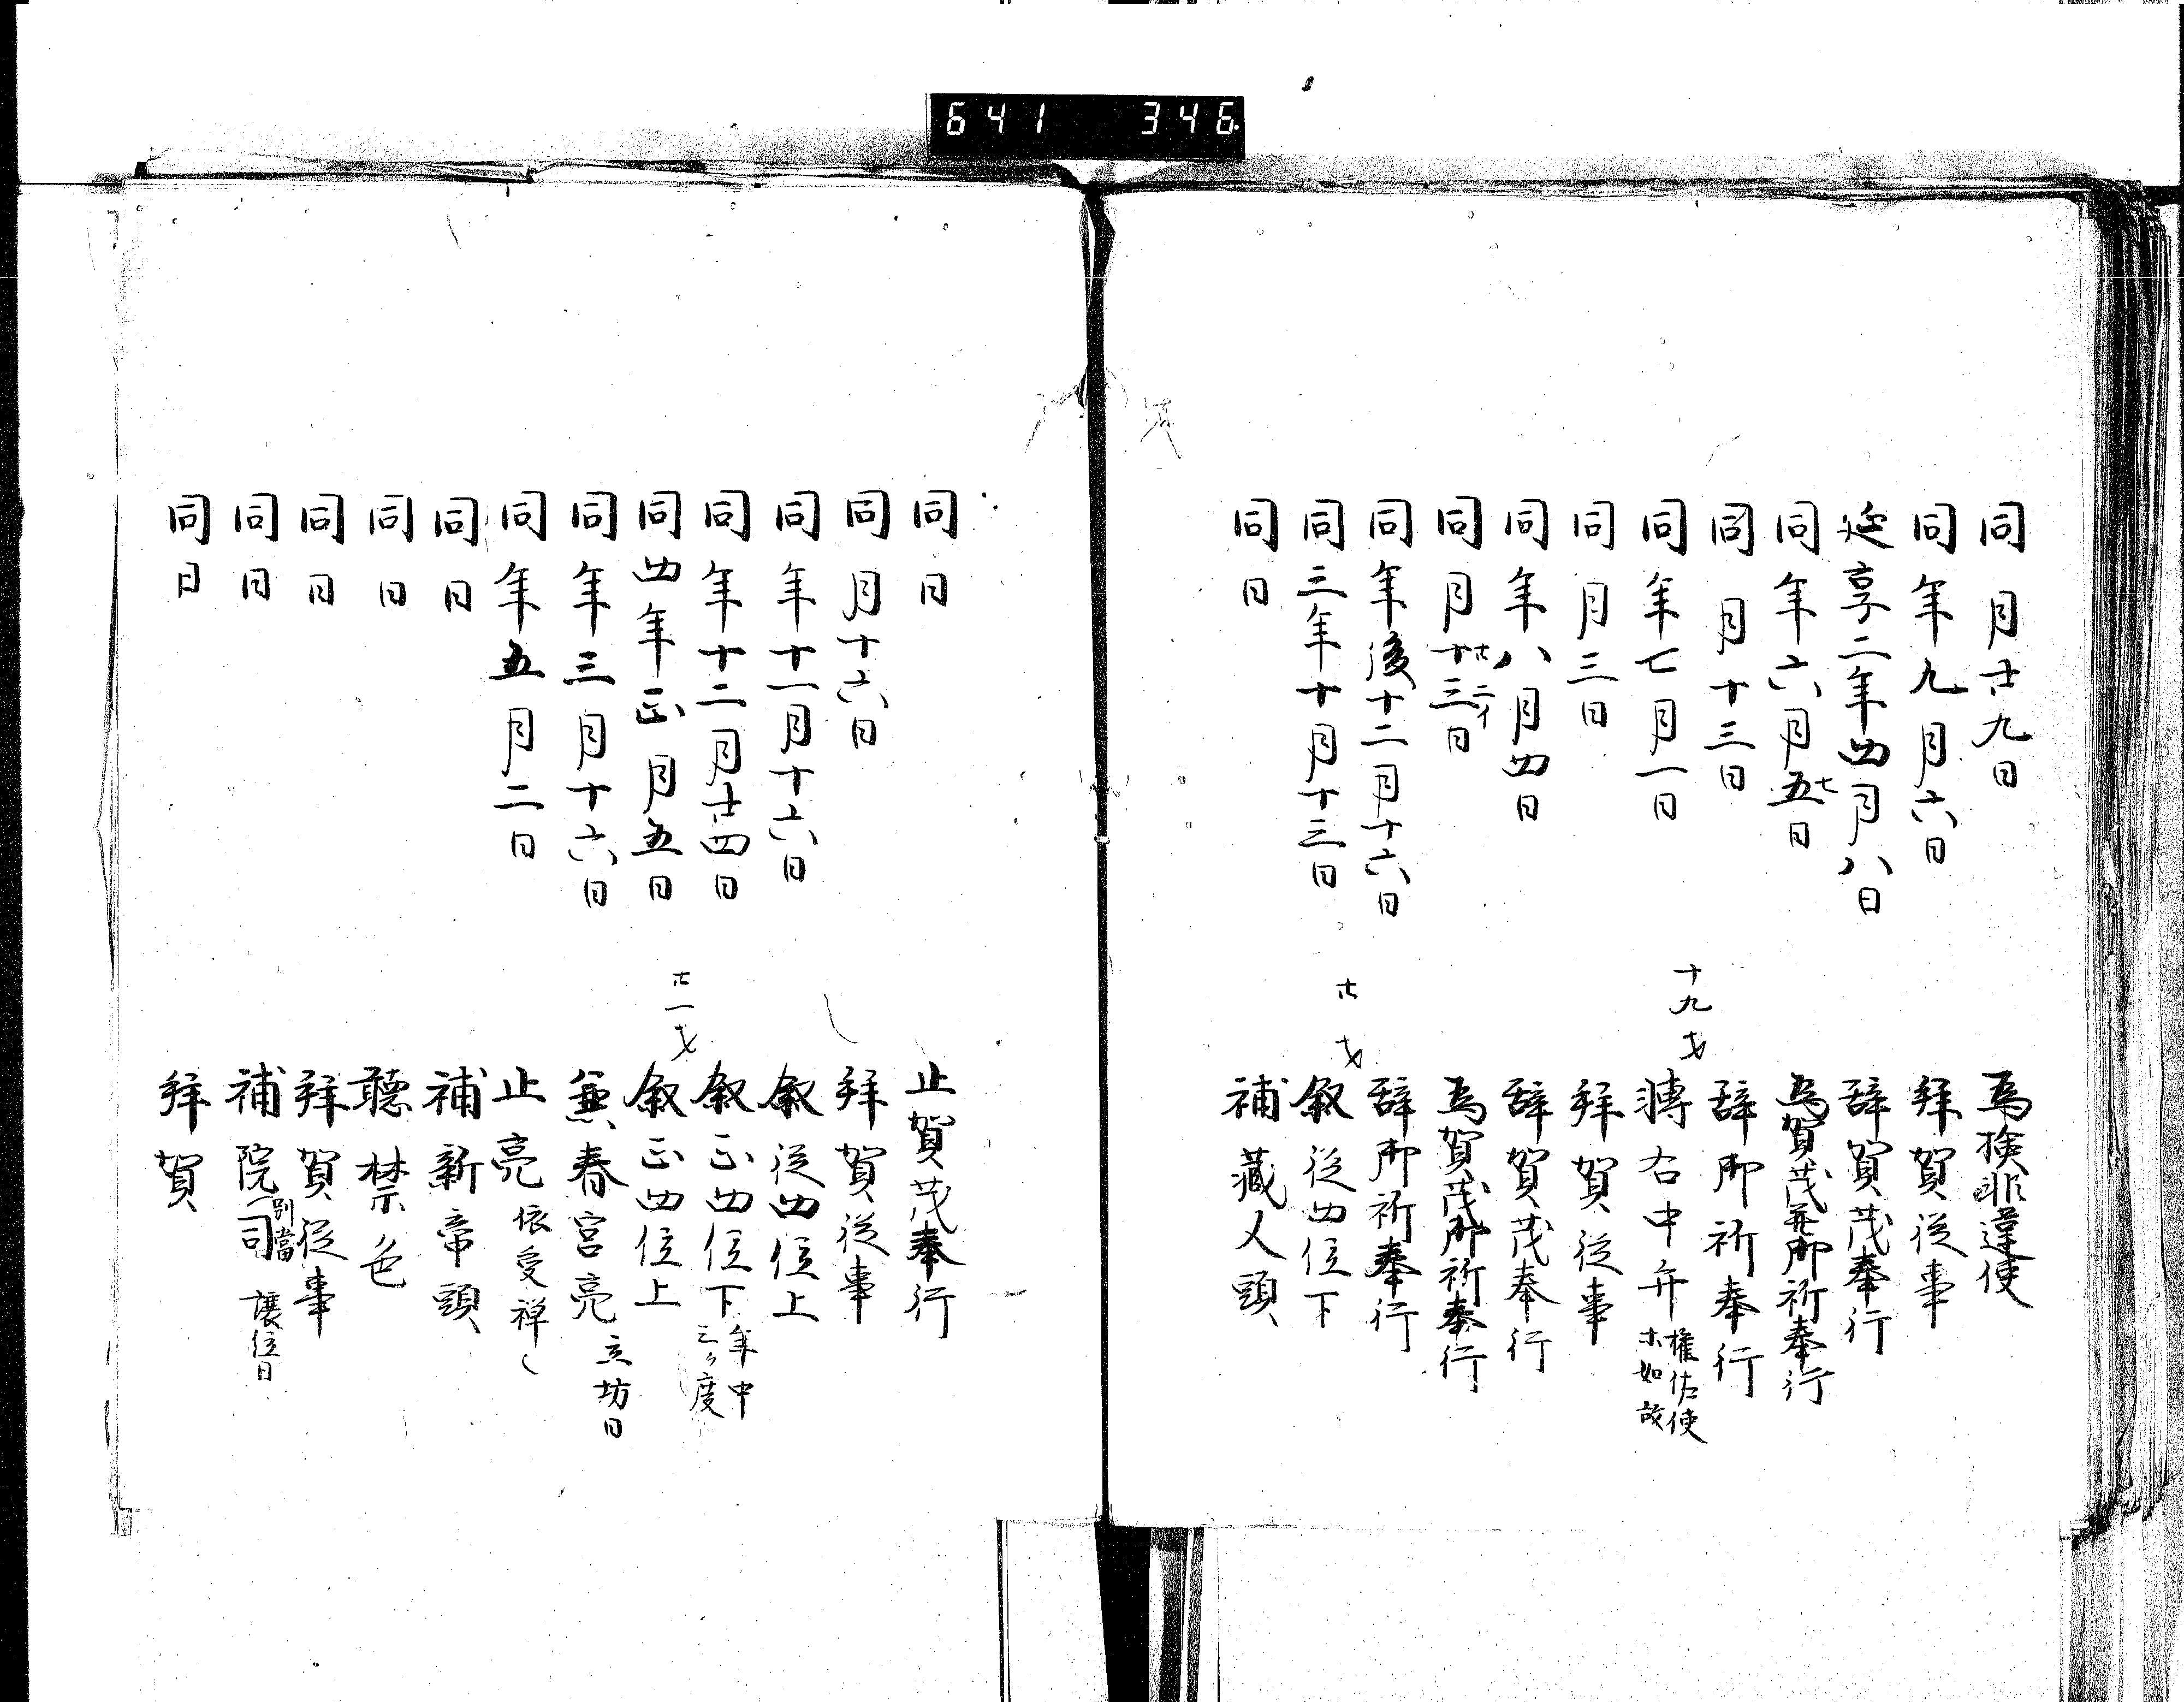 641 346
同月廿九日 為検非違使
同年九月六日 拝賀従事
延享二年四月八日 辞賀茂奉行
同年六月五日 七 為賀茂并御祈奉行
同月十三日 辞御祈奉行
同年七月一日 十九才 轉右中弁 権佐使 如故
同月三日 拝賀従事
同年八月四日 辞賀茂奉行
同月十三日 廿二イ 為賀茂御祈奉行
同年後十二月十六日 辞御祈奉行
同三年十月十三日 廿才 叙従四位下
同日 補蔵人頭
同日 止賀茂奉行
同月十六日 拝賀従事
同年十一月十六日 叙従四位上
同年十二月廿四日 叙正四位下 年中三ヶ度
同四年正月五日 廿一才 叙正四位上
同年三月十六日 兼春宮亮 立坊日
同年五月二日 止亮 依受禅
同日 補新帝頭
同日 聴禁色
同日 拝賀従事
同日 補院司 別當 譲位日
同日 拝賀